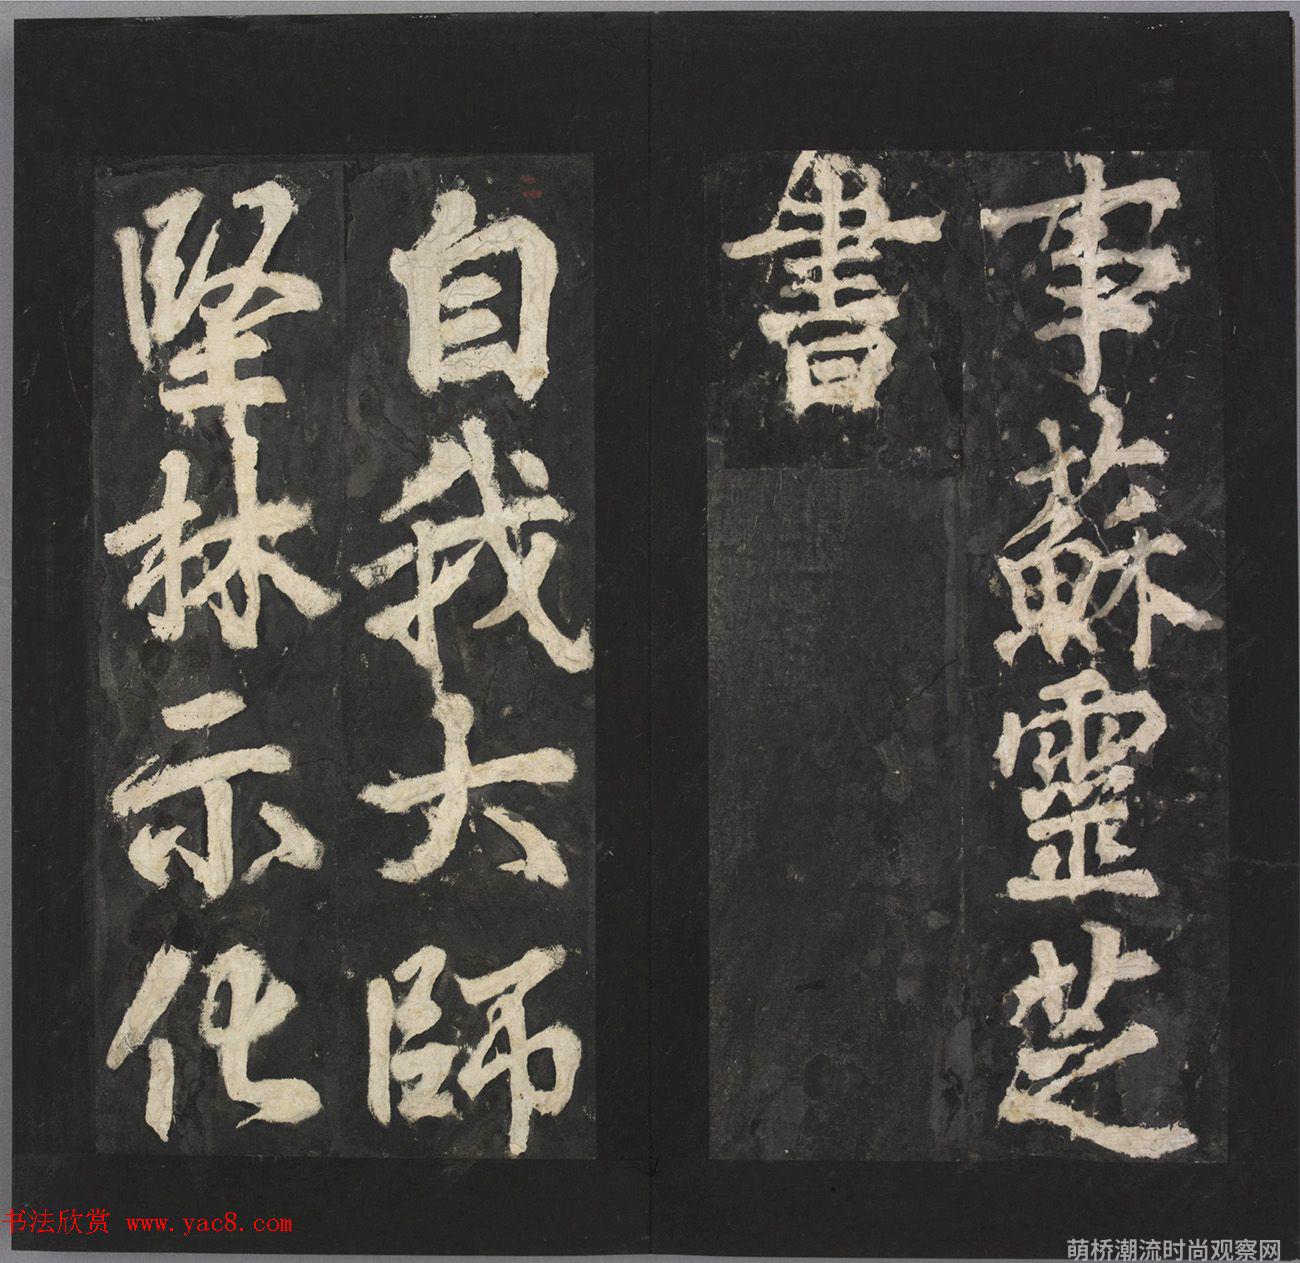 事蘇靈芝
書
自我大師
堅林示化
书法欣赏 www.yac8.com
萌桥潮流时尚观察网